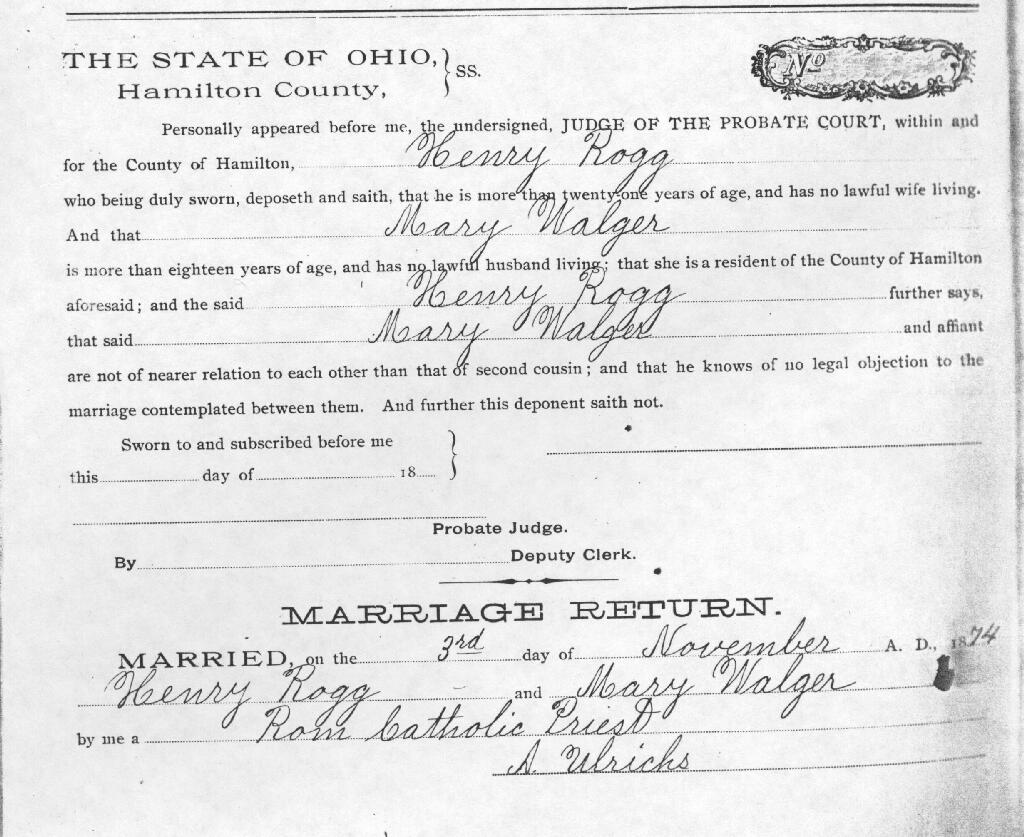 THE STATE OF OHIO, } SS.
Hamilton County,
No
Personally appeared before me, the undersigned, JUDGE OF THE PROBATE COURT, within and
for the County of Hamilton, Henry Rogg
who being duly sworn, deposeth and saith, that he is more than twenty-one years of age, and has no lawful wife living.
And that Mary Walger
is more than eighteen years of age, and has no lawful husband living; that she is a resident of the County of Hamilton
aforesaid; and the said Henry Rogg further says,
that said Mary Walger and affiant
are not of nearer relation to each other than that of second cousin; and that he knows of no legal objection to the
marriage contemplated between them. And further this deponent saith not.
Sworn to and subscribed before me }
this day of 18
Probate Judge.
By Deputy Clerk.
MARRIAGE RETURN.
MARRIED, on the 3rd day of November A. D., 1874
Henry Rogg and Mary Walger
by me a Rom Catholic Priest
A. Ulrichs